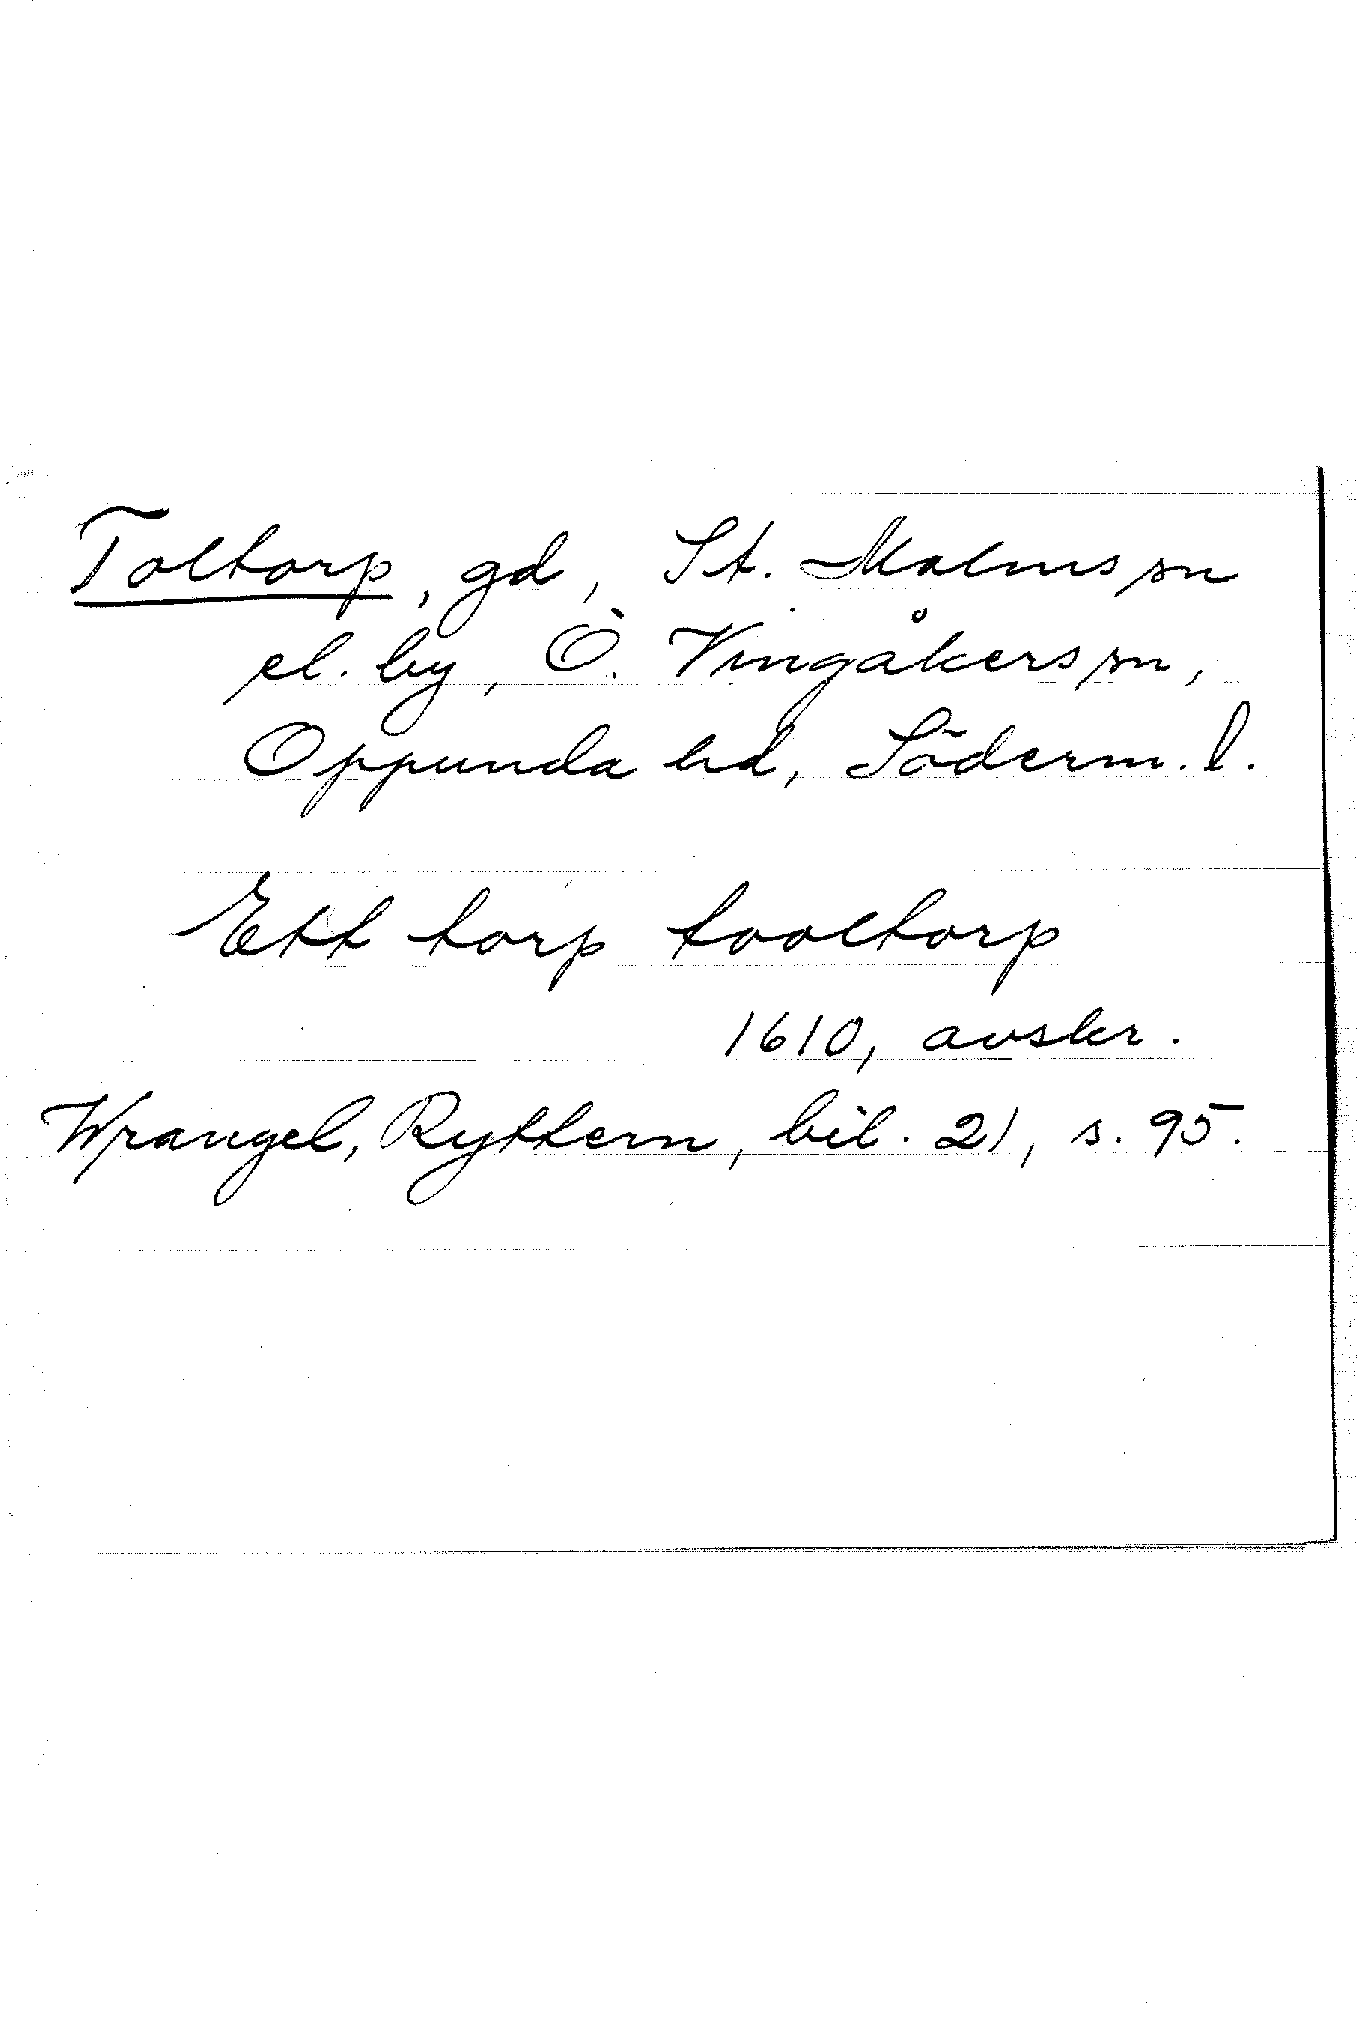 Toltorp, gd, St. Malms sn
el. by, Ö. Vingåkers sn,
Oppunda hd, Söderm. l.
Ett torp tooltorp
1610, avskr.
Wrangel, Ryttern, bil. 21, s. 95.